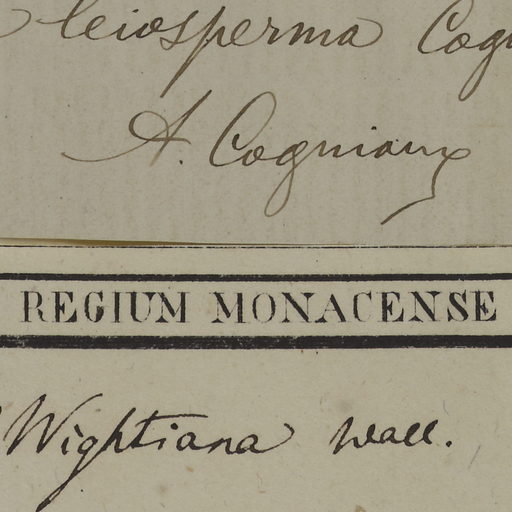 leiosperma Cogn
A. Cogniaux
REGIUM MONACENSE
Wightiana Wall.